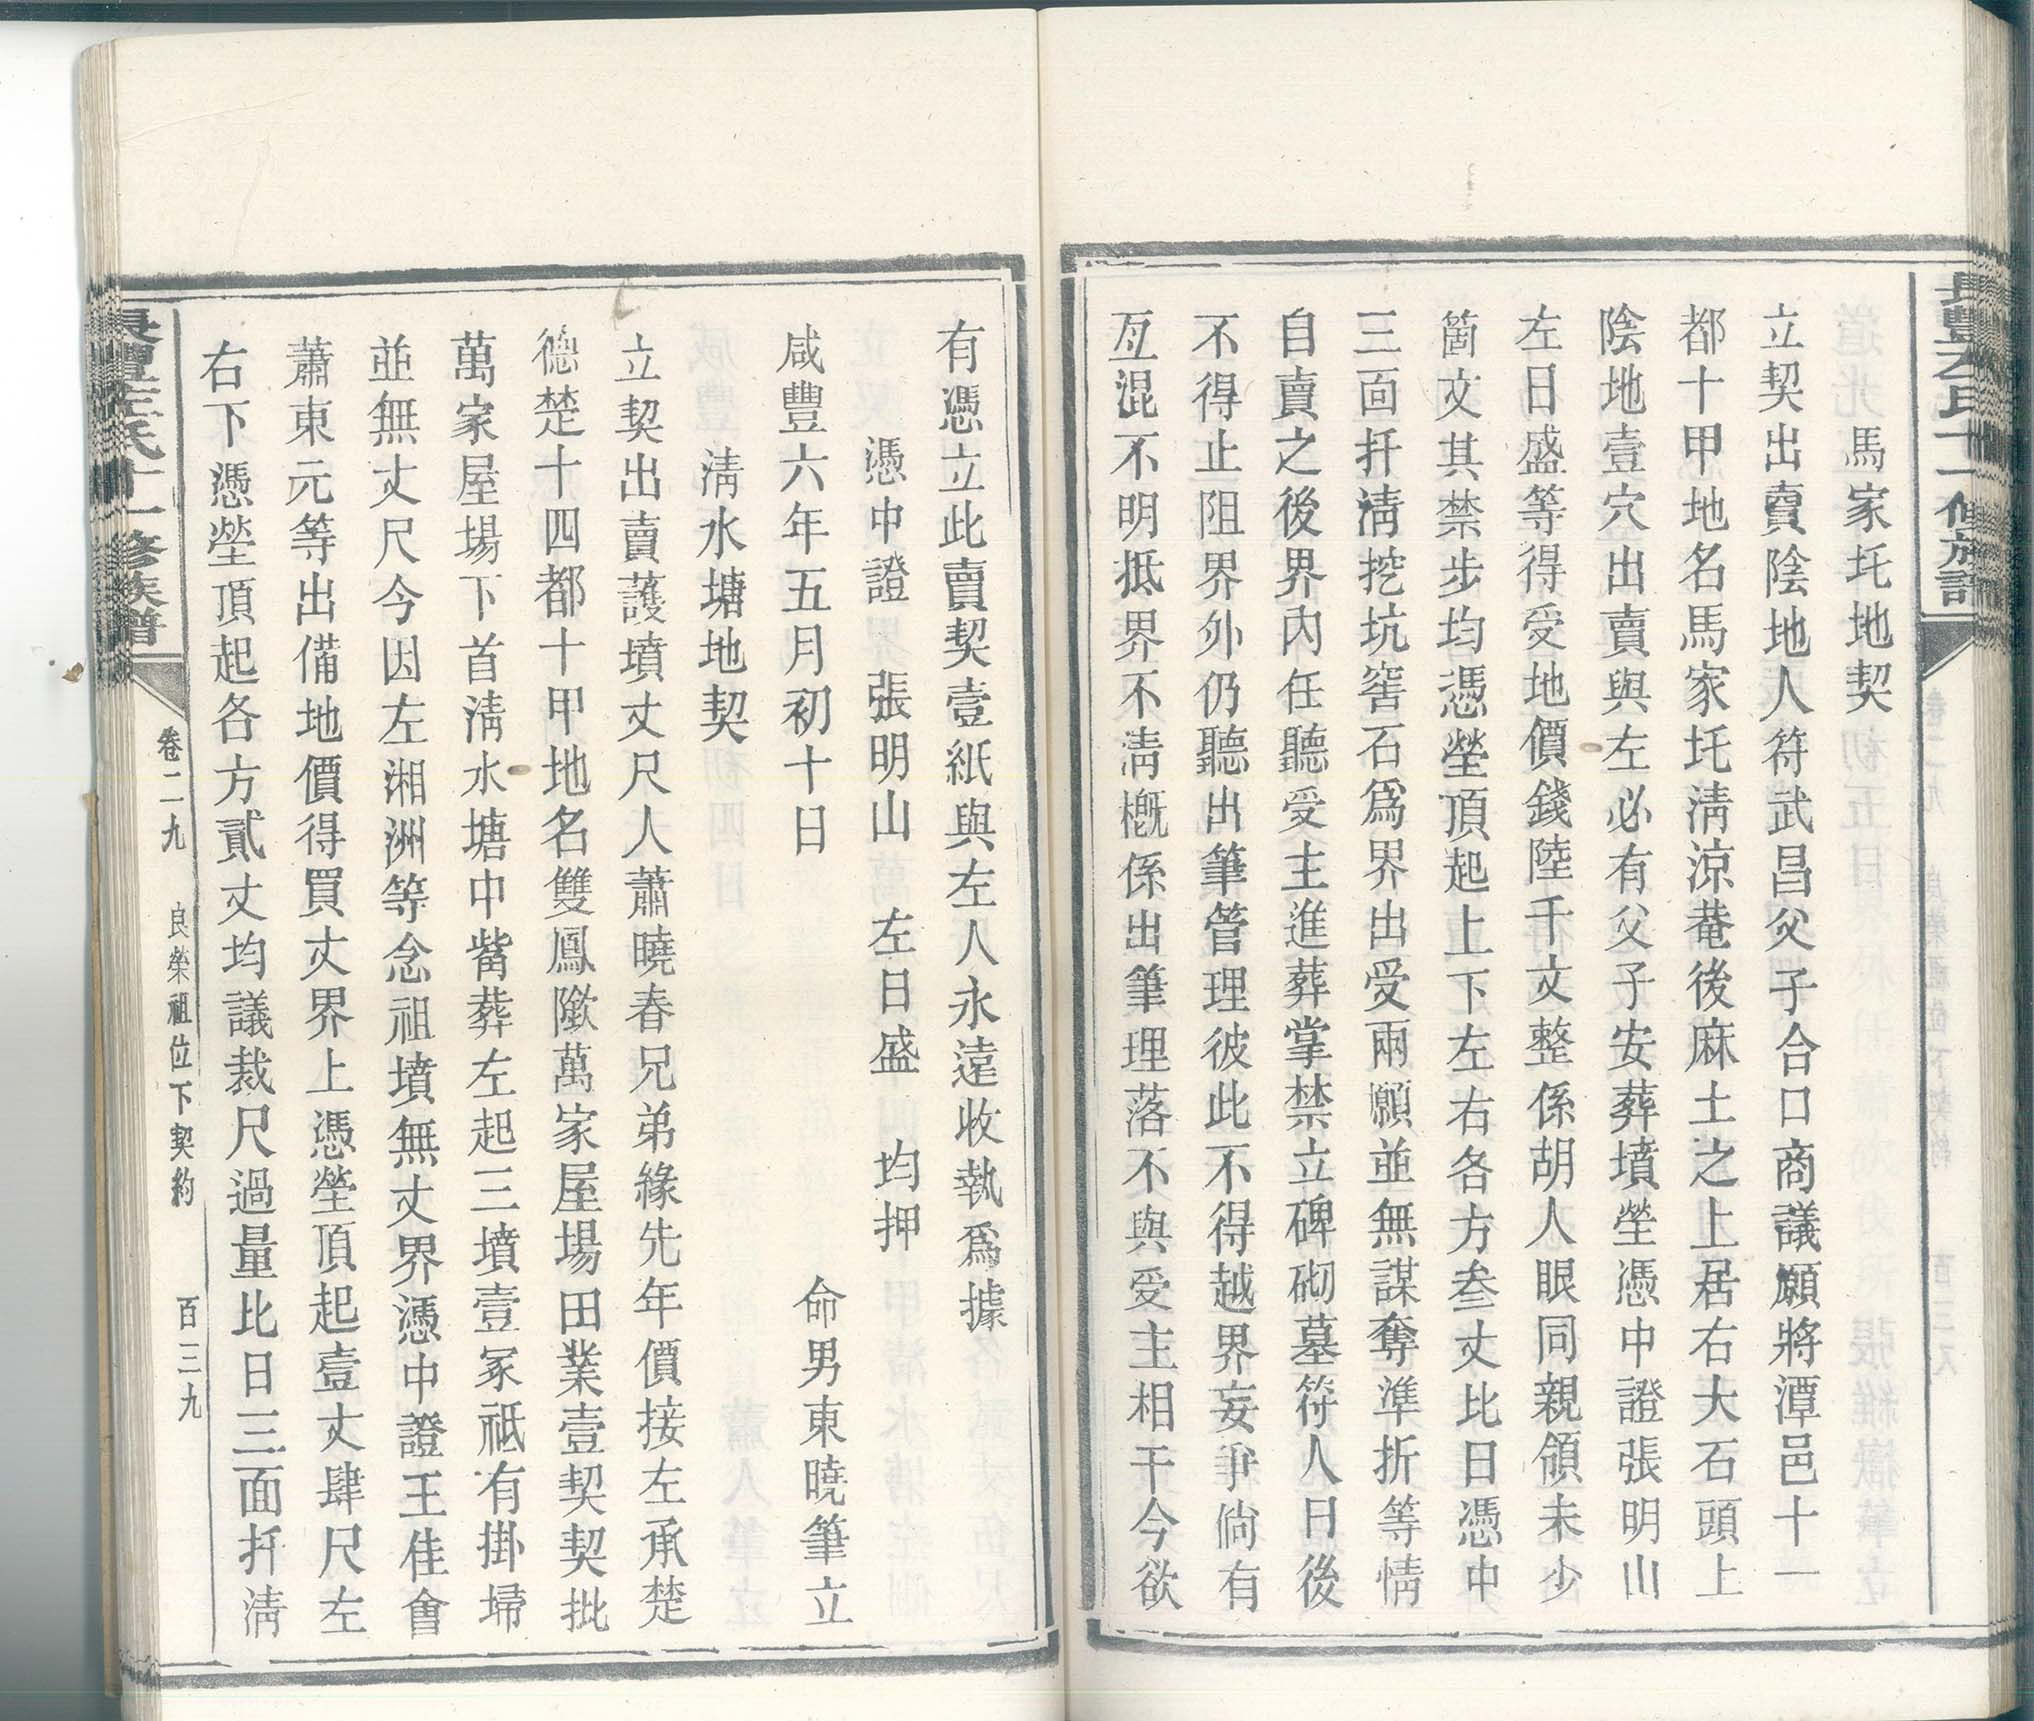 馬家圫地契
立契出賣陰地人符武昌父子合口商議願將潭邑十一
都十甲地名馬家圫淸凉菴後麻土之上居右大石頭上
陰地壹穴出賣與左必有父子安葬墳塋憑中證張明山
左日盛等得受地價錢陸千文整係胡人眼同親領未少
箇文其禁步均憑塋頂起上下左右各方叁丈比日憑中
三面扦淸挖坑窖石爲界出受兩願並無謀奪準折等情
自賣之後界內任聽受主進葬掌禁立碑砌墓符人日後
不得止阻界外仍聽出筆管理彼此不得越界妄爭倘有
互混不明抵界不淸槪係出筆理落不與受主相干今欲
有憑立此賣契壹紙與左人永遠收執爲據
憑中證 張明山 左日盛 均押
咸豐六年五月初十日 命男東曉筆立
淸水塘地契
立契出賣護墳丈尺人蕭曉春兄弟緣先年價接左承楚
德楚十四都十甲地名雙鳳隞萬家屋場田業壹契契批
萬家屋場下首淸水塘中觜葬左起三墳壹冢祗有掛掃
並無丈尺今因左湘洲等念祖墳無丈界憑中證王佳會
蕭東元等出備地價得買丈界上憑塋頂起壹丈肆尺左
右下憑塋頂起各方貳丈均議裁尺過量比日三面扦淸
長豐左氏十一修族譜
卷二九 良榮祖位下契約 百三九